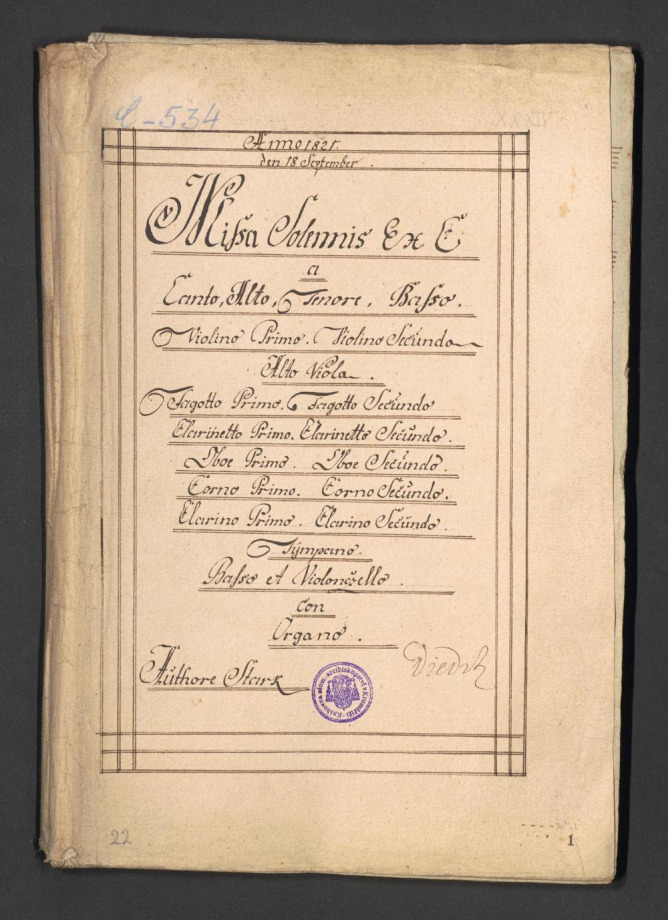 C-534
Anno 1821.
den 18 September.
Missa Solemnis Ex C
a
Canto, Alto, Tenore, Basso.
Violino Primo. Violino Secŭndo
Alto Viola.
Fagotto Primo. Fagotto Secŭndo
Clarinetto Primo. Clarinetto Secŭndo.
Oboe Primo. Oboe Secŭndo.
Corno Primo. Corno Secŭndo.
Clarino Primo. Clarino Secŭndo.
Tÿmpano.
Basso et Violoncello.
con
Organo.
Authore Stark
22
1